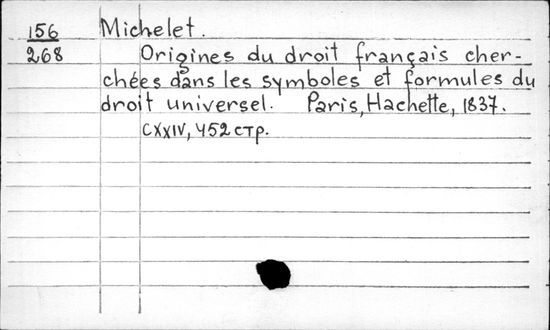 156 Michelet.
268 Origines du droit français cher-
chées dans les symboles et formules du
droit universel. Paris, Hachette, 1837.
CXXIV, 452 стр.